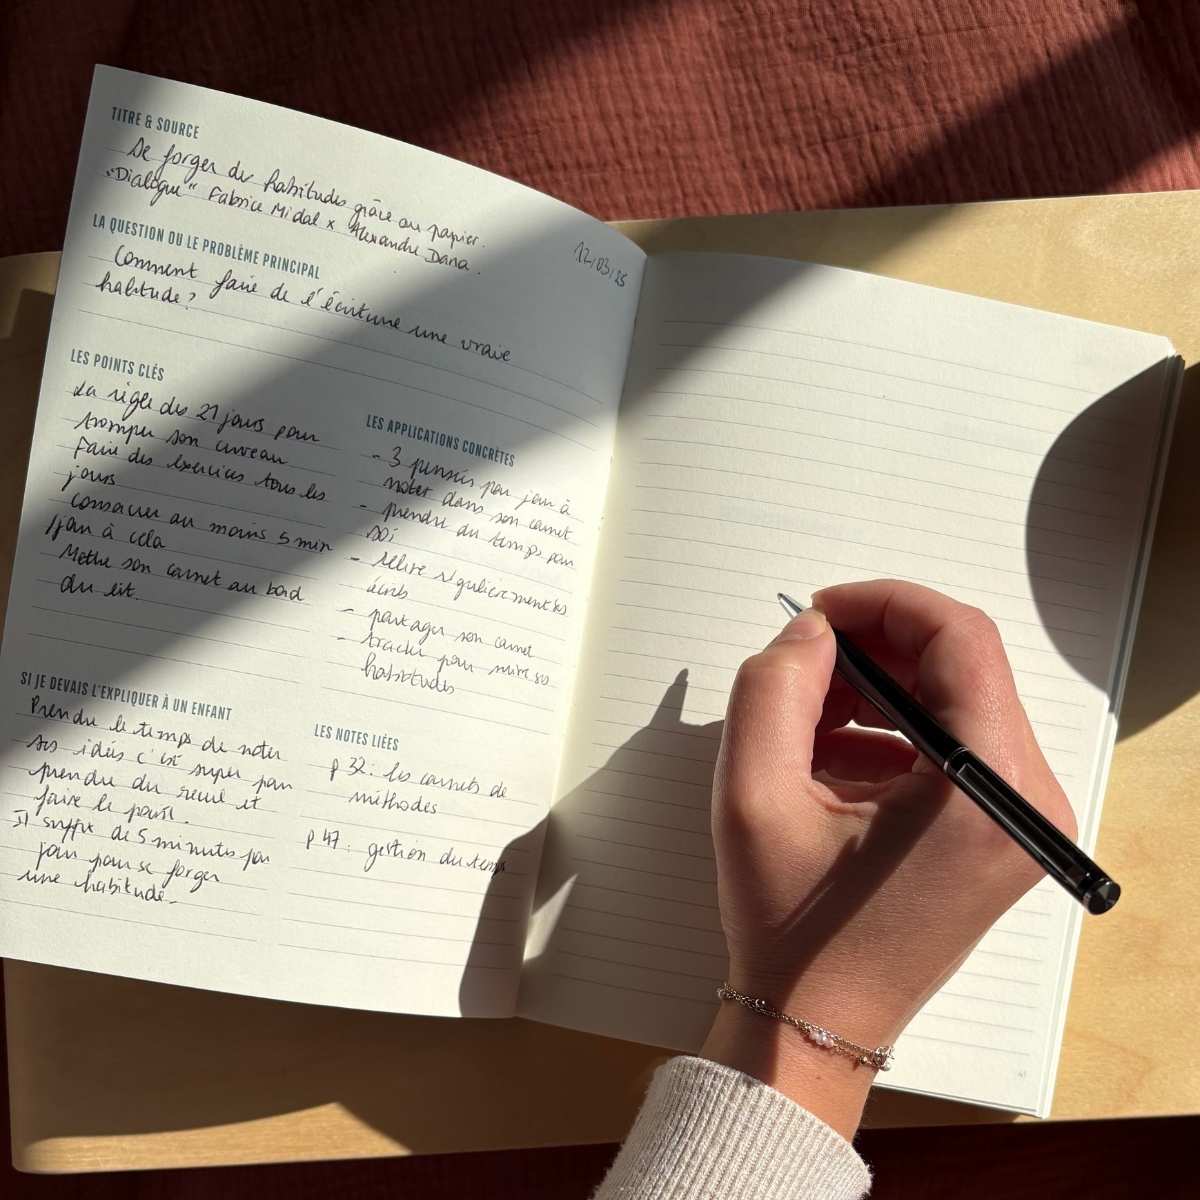 TITRE & SOURCE
Se forger des habitudes grâce au papier.
"Dialogue" Fabrice Midal x Alexandre Dana.
12/03/25
LA QUESTION OU LE PROBLÈME PRINCIPAL
Comment faire de l'écriture une vraie
habitude?
LES POINTS CLÉS
La règle des 21 jours pour
tromper son cerveau
Faire des exercices tous les
jours
consacrer au moins 5 min
/jour à cela
Mettre son carnet au bord
du lit.
LES APPLICATIONS CONCRÈTES
- 3 pensées par jour à
noter dans son carnet
- prendre du temps pour
soi
- relire régulièrement ses
écrits
- partager son carnet
- tracker pour suivre ses
habitudes
SI JE DEVAIS L'EXPLIQUER À UN ENFANT
Prendre le temps de noter
ses idées c'est super pour
prendre du recul et
faire le point.
Il suffit de 5 minutes par
jour pour se forger
une habitude.
LES NOTES LIÉES
p 32: les carnets de
méthodes
p 47: gestion du temps